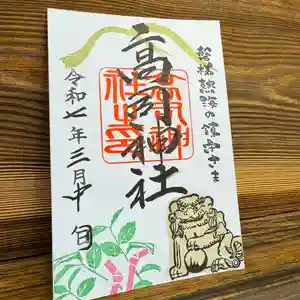 磐梯熱海の鎮守さま
高司神社
令和七年三月中旬